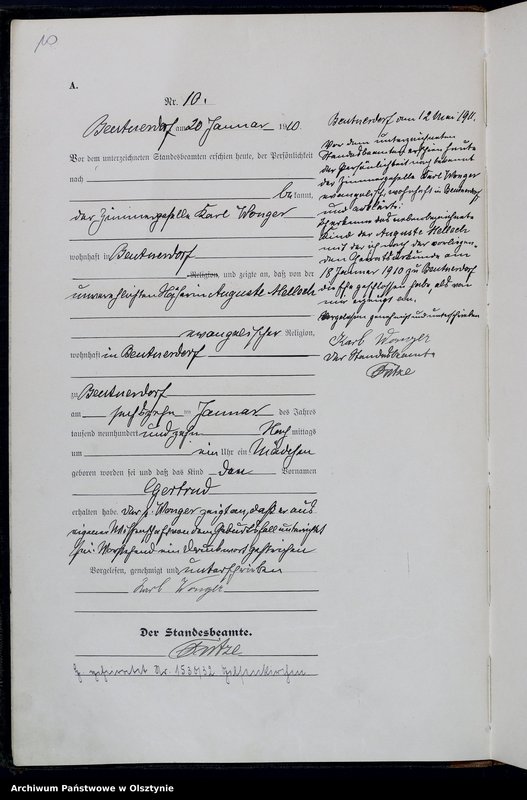 10
A.
Nr. 10.
Beutnerdorf am 20 Januar 1910.
Vor dem unterzeichneten Standesbeamten erschien heute, der Persönlichkeit
nach
bekannt,
der Zimmergeselle Karl Wonger
wohnhaft in Beutnerdorf
Religion, und zeigte an, daß von der
unverehelichten Näherin Auguste Mellech
evangelischer Religion,
wohnhaft in Beutnerdorf
zu Beutnerdorf
am sechszehn ten Januar des Jahres
tausend neunhundert und zehn Nach mittags
um ein Uhr ein Mädchen
geboren worden sei und daß das Kind den Vornamen
Gertrud
erhalten habe. Der p. Wonger zeigt an, daß er aus
eigener Wissenschaft von dem Geburtsfall unterrichtet
sei. Vorstehend ein Druckwort gestrichen
Vorgelesen, genehmigt und unterschrieben
Karl Wonger
Der Standesbeamte.
Fritze
geheiratet Nr. 1530/32 Gelsenkirchen
Beutnerdorf am 12 Mai 1911.
Vor dem unterzeichneten
Standesbeamten erschien heute
der Persönlichkeit nach bekannt
der Zimmergeselle Karl Wonger
evangelisch, wohnhaft in Beutnerdorf
und erklärte:
Ich erkenne das nebenbezeichnete
Kind der Auguste Mellech
mit der ich nach der vorliegen-
den Heiratsurkunde am
18 Januar 1910 zu Beutnerdorf
die Ehe geschlossen habe, als von
mir erzeugt an.
Vorgelesen genehmigt und unterschrieben
Karl Wonger
Der Standesbeamte
Fritze
Archiwum Państwowe w Olsztynie